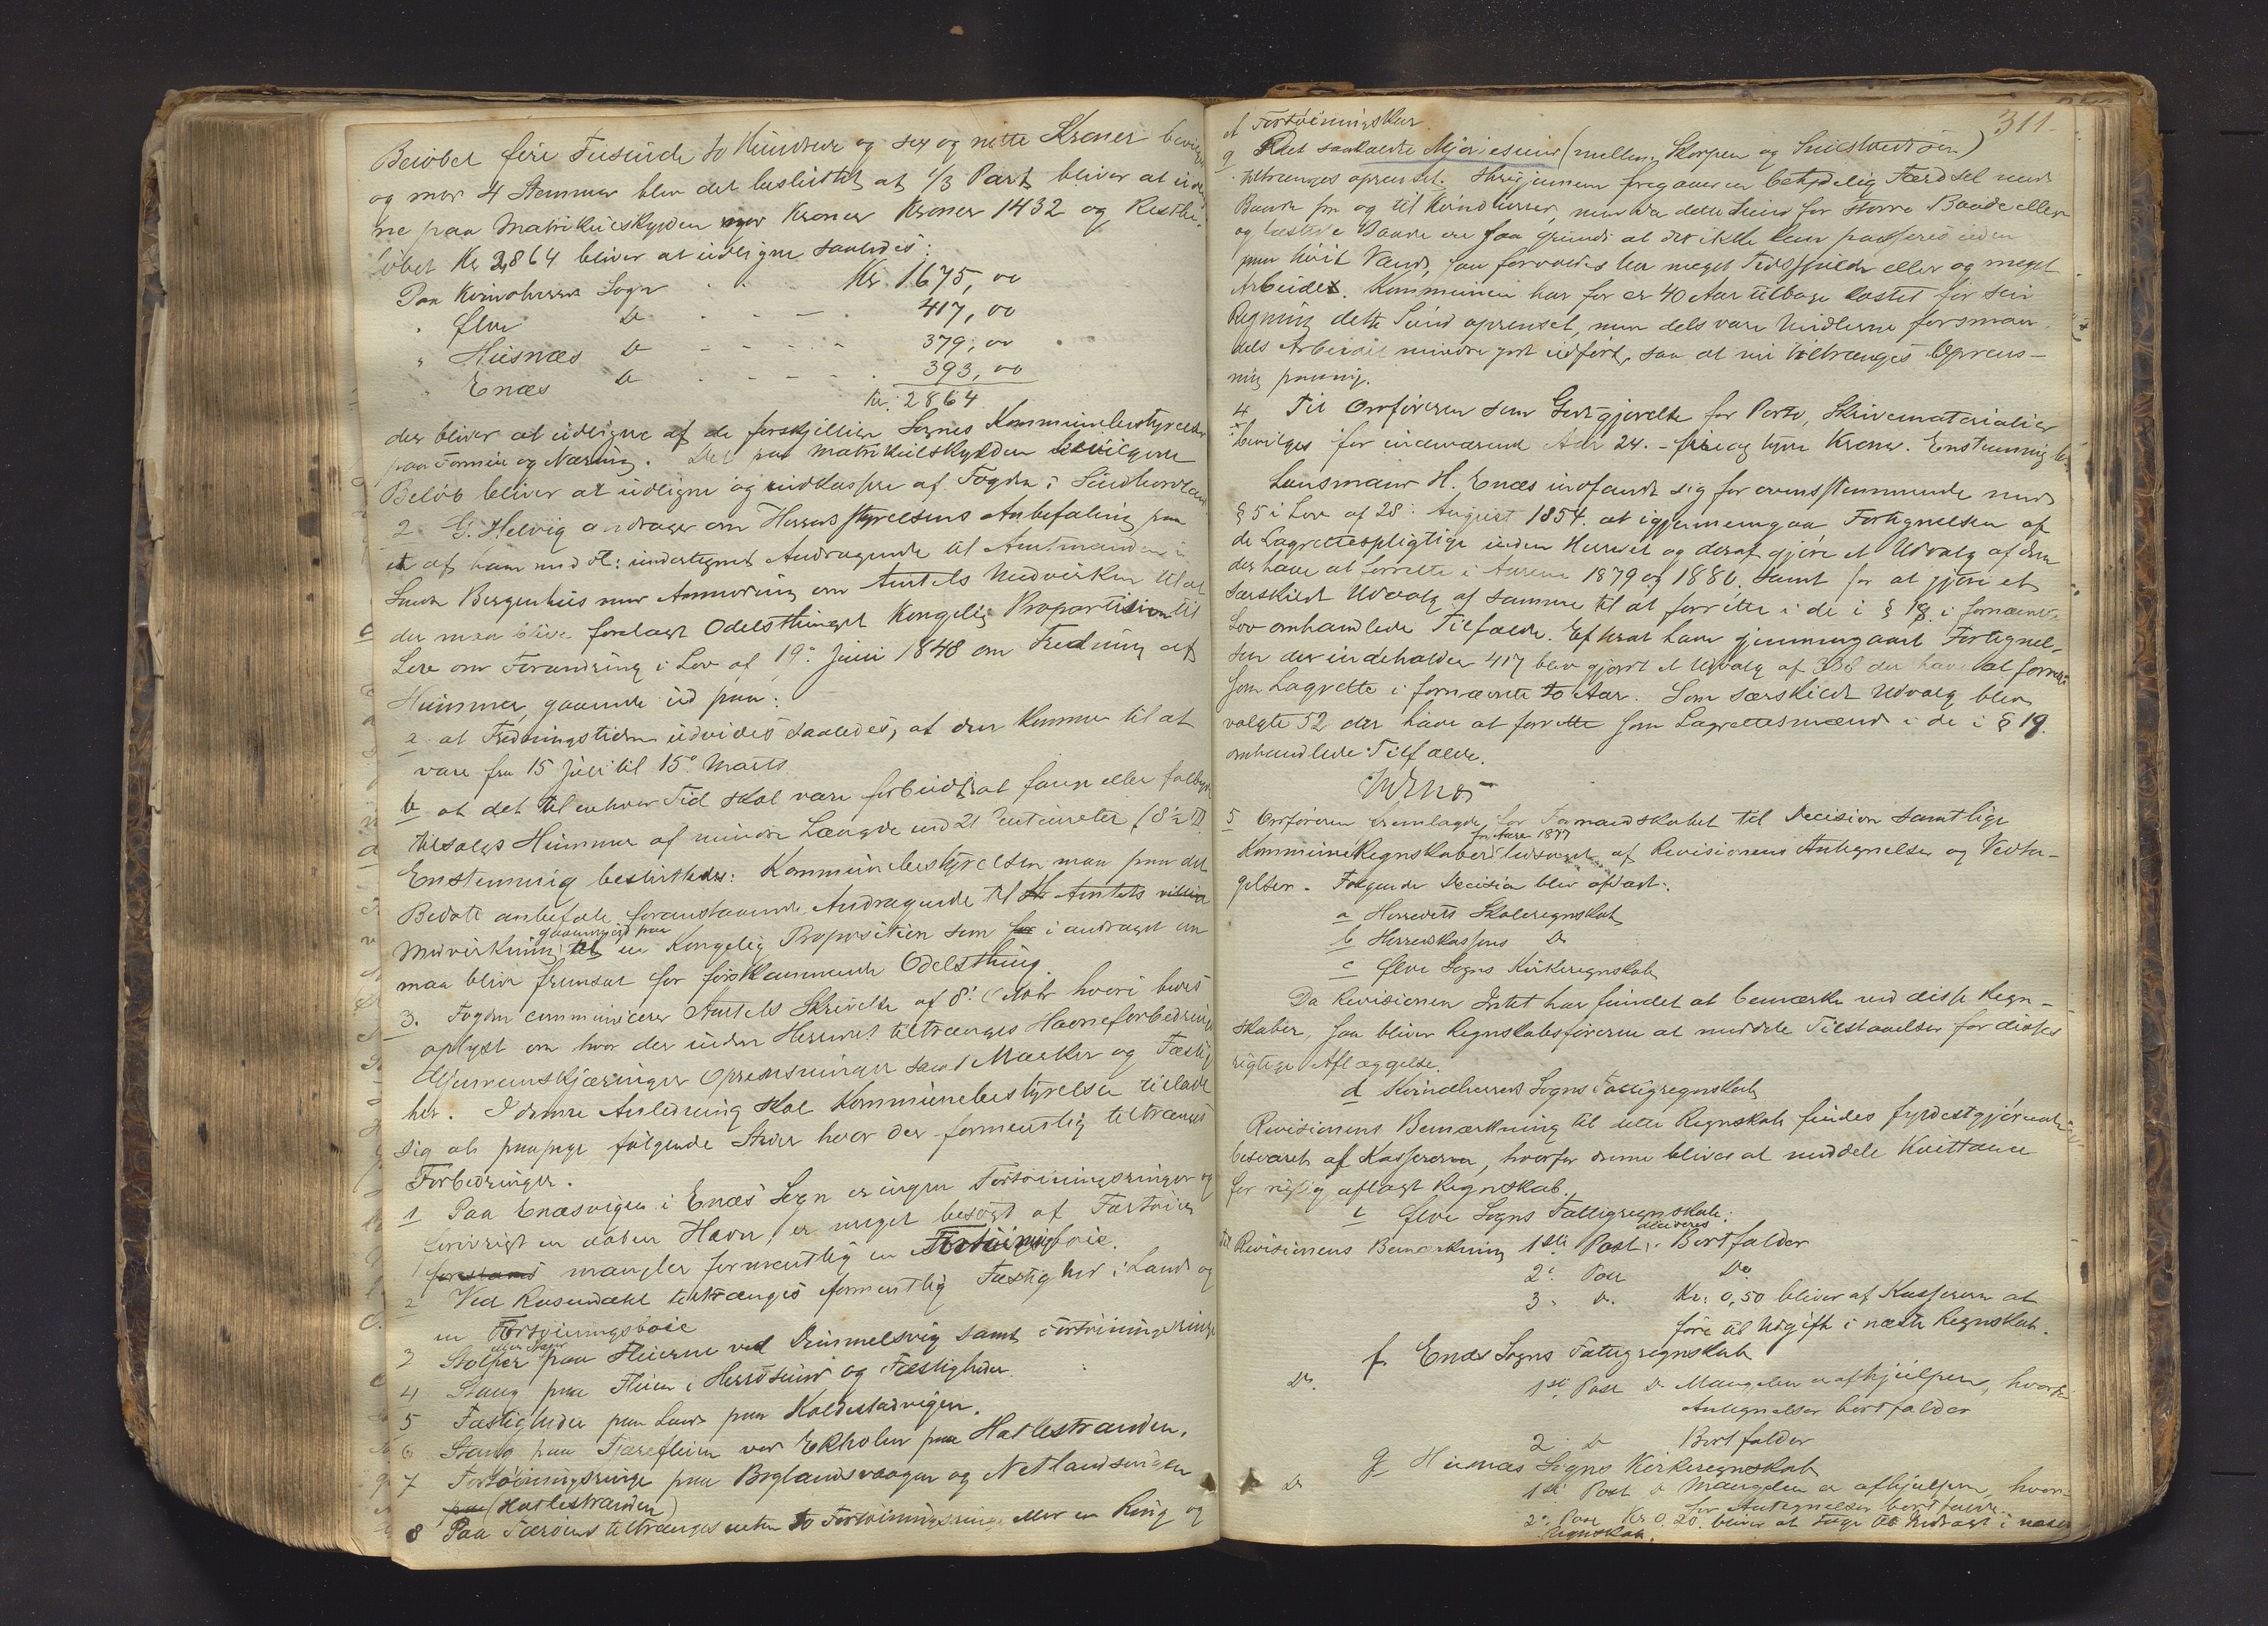 Beløbet fire Tusinde to Hundrede og sex og nitti Kroner bevilges
og med 4 Stemmer blev det besluttet at 1/3 Part bliver at udlig
ne paa Matrikulskylden med Kroner Kroner 1432 og Restbe-
løbet Kr 2,864 bliver at udligne saaledes:
Paa Kvindherred Sogn Kr. 1675,00
" Ølve Do 417,00
" Husnæs Do 379,00
" Enæs Do 393,00
Kr. 2864
der bliver at udligne af de forskjellige Sognes Kommunebestyrelser
paa Formue og Næring. Det paa Matrikulskylden bevilgede
Beløb bliver at udligne og indkassere af Fogden i Søndhordland.
2 G. Helvig andrager om Herredsstyrelsens Anbefaling paa
et af ham med Fl: undertegnet Andragende til Amtmanden i
Søndre Bergenhus med Anmodning om Amtets Medvirken til at
der maa blive forelagt Odelsthinget Kongelig Proposition til
Lov om Forandring i Lov af 19de Juni 1848 om Fredning af
Hummer, gaaende ud paa:
a at Fredningstiden udvides saaledes, at den kommer til at
vare fra 15 Juli til 15de Marts
b at det til enhver Tid skal være forbudt at fange eller falbyde
tilsalgs Hummer af mindre Længde end 21 Centimeter (8 1/2 T).
Enstemmig besluttedes: Kommunebestyrelsen maa paa det
Bedste anbefale foranstaaende Andragende til Amtets
Medvirkning gaaende ud paa at en Kongelig Proposition som i andraget om
maa blive fremsat for førstkommende Odelsthing.
3. Fogden communicerer Amtets Skrivelse af 8de Oktbr hvori bedes
oplyst om hvor der inden Herredet tiltrænges Havneforbedringer
Gjennemskjæringer Oprensninger samt Mærker og Fæstig
her. I denne Anledning skal Kommunebestyrelsen tillade
sig at paapege følgende Steder hvor der formentlig tiltrænges
Forbedringer.
1 Paa Enæsvigen i Enæs Sogn er ingen Fortøiningsringer og
forøvrigt en aaben Havn, er meget besøgt af Fartøier
mangler formentlig en Fortøiningsbøie.
2 Ved Rosendahl tiltrænges formentlig Fæstigheder i Land og
en Fortøiningsbøie
3 Stolper paa Fluerne ved Dimmelsvig samt Fortøiningsringe
4 Stang paa Fluen i Herøsund og Fæstigheder.
5 Fæstigheder paa Land paa Koldestadvigen.
6 Stang paa Fjærefluen ved Ekholm paa Hatlestranden.
7 Fortøiningsringe paa Boglandsvaagen og Netlandsvigen
(Hatlestranden)
8 Paa Færøens tiltrænges enten to Fortøiningsringe eller en Ring og
311.
et Fortøiningskar.
9 Det saakaldte Mjøvesund (mellem Skorpen og Snilstvedtøen)
tiltrænges oprenset. Herigjennem foregaar en betydelig Færdsel med
Baade fra og til Kvindherred, men da dette Sund for større Baade eller
og læstede Baade er saa grundt at det ikke kan passeres uden
paa høit Vand, saa forvoldes der meget Tidsspilde eller og meget
Arbeide. Kommunen har for ca 40 Aar tilbage kostet for sin
Regning dette Sund oprenset, men dels vare Midlerne forsmaa
dels Arbeidet mindre godt udført, saa at nu tiltrænges Oprens-
ning paany.
4 Til Ordføreren som Godtgjørelse for Porto, Skrivematerialier
bevilges for indeværende Aar 24. – fire og tyve Kroner. Enstemmig be-
Lensmand H. Enæs indfandt sig for overensstemmende med
§ 5 i Lov af 28de August 1854. at igjennemgaa Fortegnelsen af
de Lagrettespligtige inden Herredet og deraf gjøre et Udvalg af dem
der have at forrette i Aarene 1879 og 1880. samt for at gjøre et
særskildt Udvalg af samme til at forrette i de i § 19 i fornævnte
Lov omhandlede Tilfælde. Efterat have gjennemgaaet Fortegnel-
sen der indeholder 417 blev gjort et Udvalg af 338 der have at forrette
som Lagrette i fornævnte to Aar. Som særskildt Udvalg blev
valgte 52 der have at forrette som Lagrettesmænd i de i § 19.
omhandlede Tilfælde.
HEnæs
5 Ordføreren fremlagde for Formandskabet til Decision samtlige
Kommune Regnskaber for Aaret 1877 ledsaget af Revisionens Antegnelser og Vedta-
gelser. Følgende Decision blev afsagt:
a Herredets Skoleregnskab
b Herredskassens Do
c Ølve Sogns Kirkeregnskab
Da Revisionen Intet har fundet at bemærke ved disse Regn-
skaber, saa bliver Regnskabsførerne at meddele Tilstaaelser for disses
rigtige Aflæggelse.
d Kvindherred Sogns Fattigregnskab
Revisionens Bemærkning til dette Regnskab findes fyldestgjørende
besvaret af Kassereren, hvorfor denne bliver at meddele Kvittance
for rigtig aflagt Regnskab.
e Ølve Sogns Fattigregnskab:
Til Revisionens Bemærkning 1ste Post decideres: Bortfalder
2: Post Do
3: Do. Kr: 0,50 bliver af Kassereren at
føre til Udgift i næste Regnskab.
f. Enæs Sogns Fattigregnskab
Do. 1ste Post Do Mangelen er afhjulpen, hvorfor
Antegnelsen bortfalder
2 Do Bortfalder
g Husnæs Sogns Kirkeregnskab
Do 1ste Post Do Mangelen er afhjulpen, hvor-
for Antegnelsen bortfalder.
2: Post Kr 0,20. bliver at tage til Indtægt i næste
Regnskab.